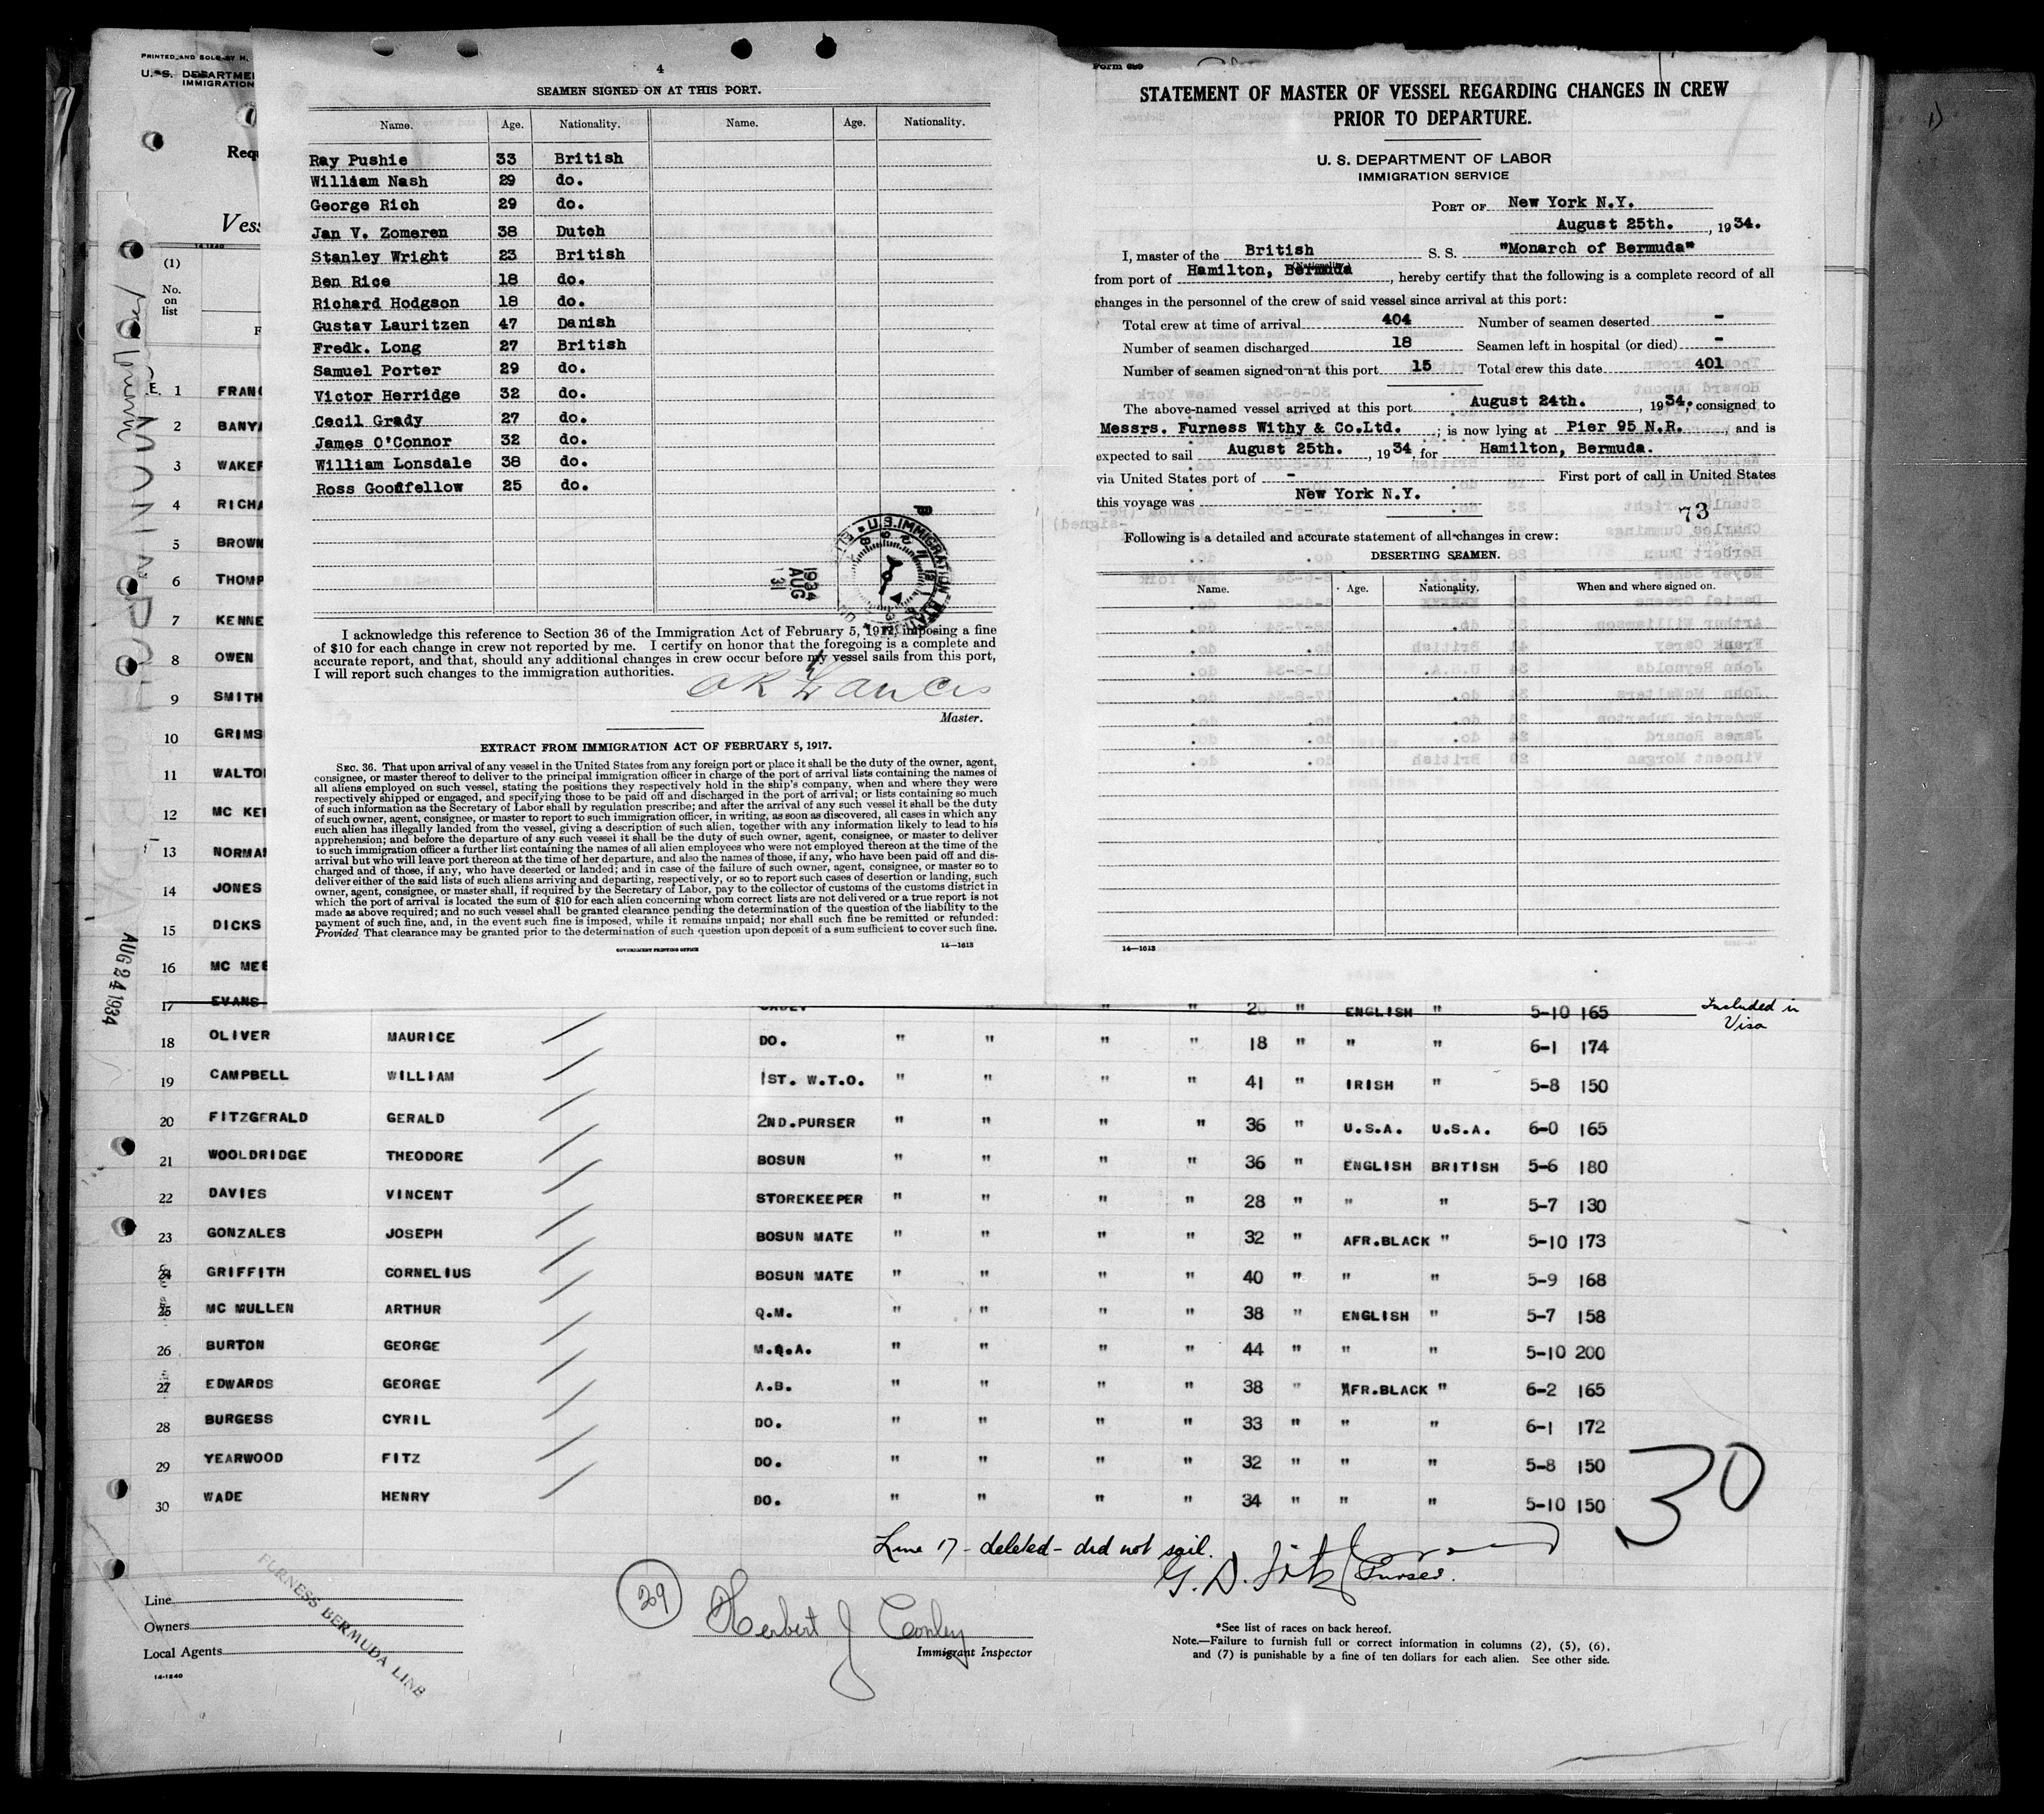 4
SEAMEN SIGNED ON AT THIS PORT.
Name. Age. Nationality. Name. Age. Nationality.
Ray Pushie 33 British
William Nash 29 do.
George Rich 29 do.
Jan V. Zomeren 38 Dutch
Stanley Wright 23 British
Ben Rice 18 do.
Richard Hodgson 18 do.
Gustav Lauritzen 47 Danish
Fredk. Long 27 British
Samuel Porter 29 do.
Victor Herridge 32 do.
Cecil Grady 27 do.
James O'Connor 32 do.
William Lonsdale 38 do.
Ross Goodfellow 25 do.
U.S. IMMIGRATION
1934 AUG 31
I acknowledge this reference to Section 36 of the Immigration Act of February 5, 1917, imposing a fine
of $10 for each change in crew not reported by me. I certify on honor that the foregoing is a complete and
accurate report, and that, should any additional changes in crew occur before my vessel sails from this port,
I will report such changes to the immigration authorities.
Master.
EXTRACT FROM IMMIGRATION ACT OF FEBRUARY 5, 1917.
SEC. 36. That upon arrival of any vessel in the United States from any foreign port or place it shall be the duty of the owner, agent,
consignee, or master thereof to deliver to the principal immigration officer in charge of the port of arrival lists containing the names of
all aliens employed on such vessel, stating the positions they respectively hold in the ship's company, when and where they were
respectively shipped or engaged, and specifying those to be paid off and discharged in the port of arrival; or lists containing so much
of such information as the Secretary of Labor shall by regulation prescribe; and after the arrival of any such vessel it shall be the duty
of such owner, agent, consignee, or master to report to such immigration officer, in writing, as soon as discovered, all cases in which any
such alien has illegally landed from the vessel, giving a description of such alien, together with any information likely to lead to his
apprehension; and before the departure of any such vessel it shall be the duty of such owner, agent, consignee, or master to deliver
to such immigration officer a further list containing the names of all alien employees who were not employed thereon at the time of the
arrival but who will leave port thereon at the time of her departure, and also the names of those, if any, who have been paid off and dis-
charged and of those, if any, who have deserted or landed; and in case of the failure of such owner, agent, consignee, or master so to
deliver either of the said lists of such aliens arriving and departing, respectively, or so to report such cases of desertion or landing, such
owner, agent, consignee, or master shall, if required by the Secretary of Labor, pay to the collector of customs of the customs district in
which the port of arrival is located the sum of $10 for each alien concerning whom correct lists are not delivered or a true report is not
made as above required; and no such vessel shall be granted clearance pending the determination of the question of the liability to the
payment of such fine, and, in the event such fine is imposed, while it remains unpaid; nor shall such fine be remitted or refunded:
Provided That clearance may be granted prior to the determination of such question upon deposit of a sum sufficient to cover such fine.
GOVERNMENT PRINTING OFFICE 14—1613
Form 689
STATEMENT OF MASTER OF VESSEL REGARDING CHANGES IN CREW
PRIOR TO DEPARTURE.
U. S. DEPARTMENT OF LABOR
IMMIGRATION SERVICE
PORT OF New York N.Y.
August 25th. , 1934.
I, master of the British S. S. "Monarch of Bermuda"
(Nationality.)
from port of Hamilton, Bermuda, hereby certify that the following is a complete record of all
changes in the personnel of the crew of said vessel since arrival at this port:
Total crew at time of arrival 404 Number of seamen deserted -
Number of seamen discharged 18 Seamen left in hospital (or died) -
Number of seamen signed on at this port 15 Total crew this date 401
The above-named vessel arrived at this port August 24th. , 1934, consigned to
Messrs. Furness Withy & Co.Ltd. ; is now lying at Pier 95 N.R. , and is
expected to sail August 25th. , 1934 for Hamilton, Bermuda.
via United States port of - First port of call in United States
this voyage was New York N.Y.
73
Following is a detailed and accurate statement of all changes in crew:
DESERTING SEAMEN.
Name. Age. Nationality. When and where signed on.
14—1613
PRINTED AND SOLD BY H.
U. S. DEPARTME
IMMIGRATION
Requ
Vess
14-1240
(1)
No.
on
list
F
E. 1 FRANC
2 BANYA
3 WAKEF
4 RICHA
5 BROWN
6 THOMP
7 KENNE
8 OWEN
9 SMITH
10 GRIMS
11 WALTO
12 MC KE
13 NORMA
14 JONES
15 DICKS
16 MC MEE
AUG 24 1934
17 EVANS CADET " " 20 " ENGLISH " 5-10 165 Included in
Visa
18 OLIVER MAURICE DO. " " " " 18 " " " 6-1 174
19 CAMPBELL WILLIAM 1ST. W.T.O. " " " " 41 " IRISH " 5-8 150
20 FITZGERALD GERALD 2ND.PURSER " " " " 36 " U.S.A. U.S.A. 6-0 165
21 WOOLDRIDGE THEODORE BOSUN " " " " 36 " ENGLISH BRITISH 5-6 180
22 DAVIES VINCENT STOREKEEPER " " " " 28 " " " 5-7 130
23 GONZALES JOSEPH BOSUN MATE " " " " 32 " AFR.BLACK " 5-10 173
24 GRIFFITH CORNELIUS BOSUN MATE " " " " 40 " " " 5-9 168
25 MC MULLEN ARTHUR Q.M. " " " " 38 " ENGLISH " 5-7 158
26 BURTON GEORGE M.Q.A. " " " " 44 " " " 5-10 200
27 EDWARDS GEORGE A.B. " " " " 38 " AFR.BLACK " 6-2 165
28 BURGESS CYRIL DO. " " " " 33 " " " 6-1 172
29 YEARWOOD FITZ DO. " " " " 32 " " " 5-8 150
30 WADE HENRY DO. " " " " 34 " " " 5-10 150
30
Line 17 - deleted - did not sail.
G. D. Fitzgerald
Purser.
29 Herbert J Conley
Immigrant Inspector
Line
Owners
Local Agents
14-1240
FURNESS BERMUDA LINE
*See list of races on back hereof.
Note.—Failure to furnish full or correct information in columns (2), (5), (6),
and (7) is punishable by a fine of ten dollars for each alien. See other side.